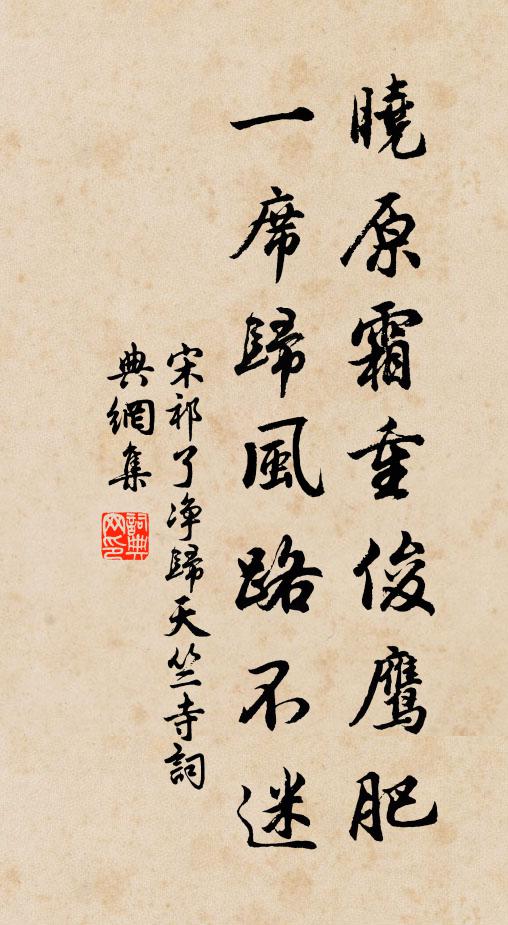 曉原霜重俊鹰肥
一席歸風路不迷
宋祁了净歸天竺寺詞
典網集
詞典网印